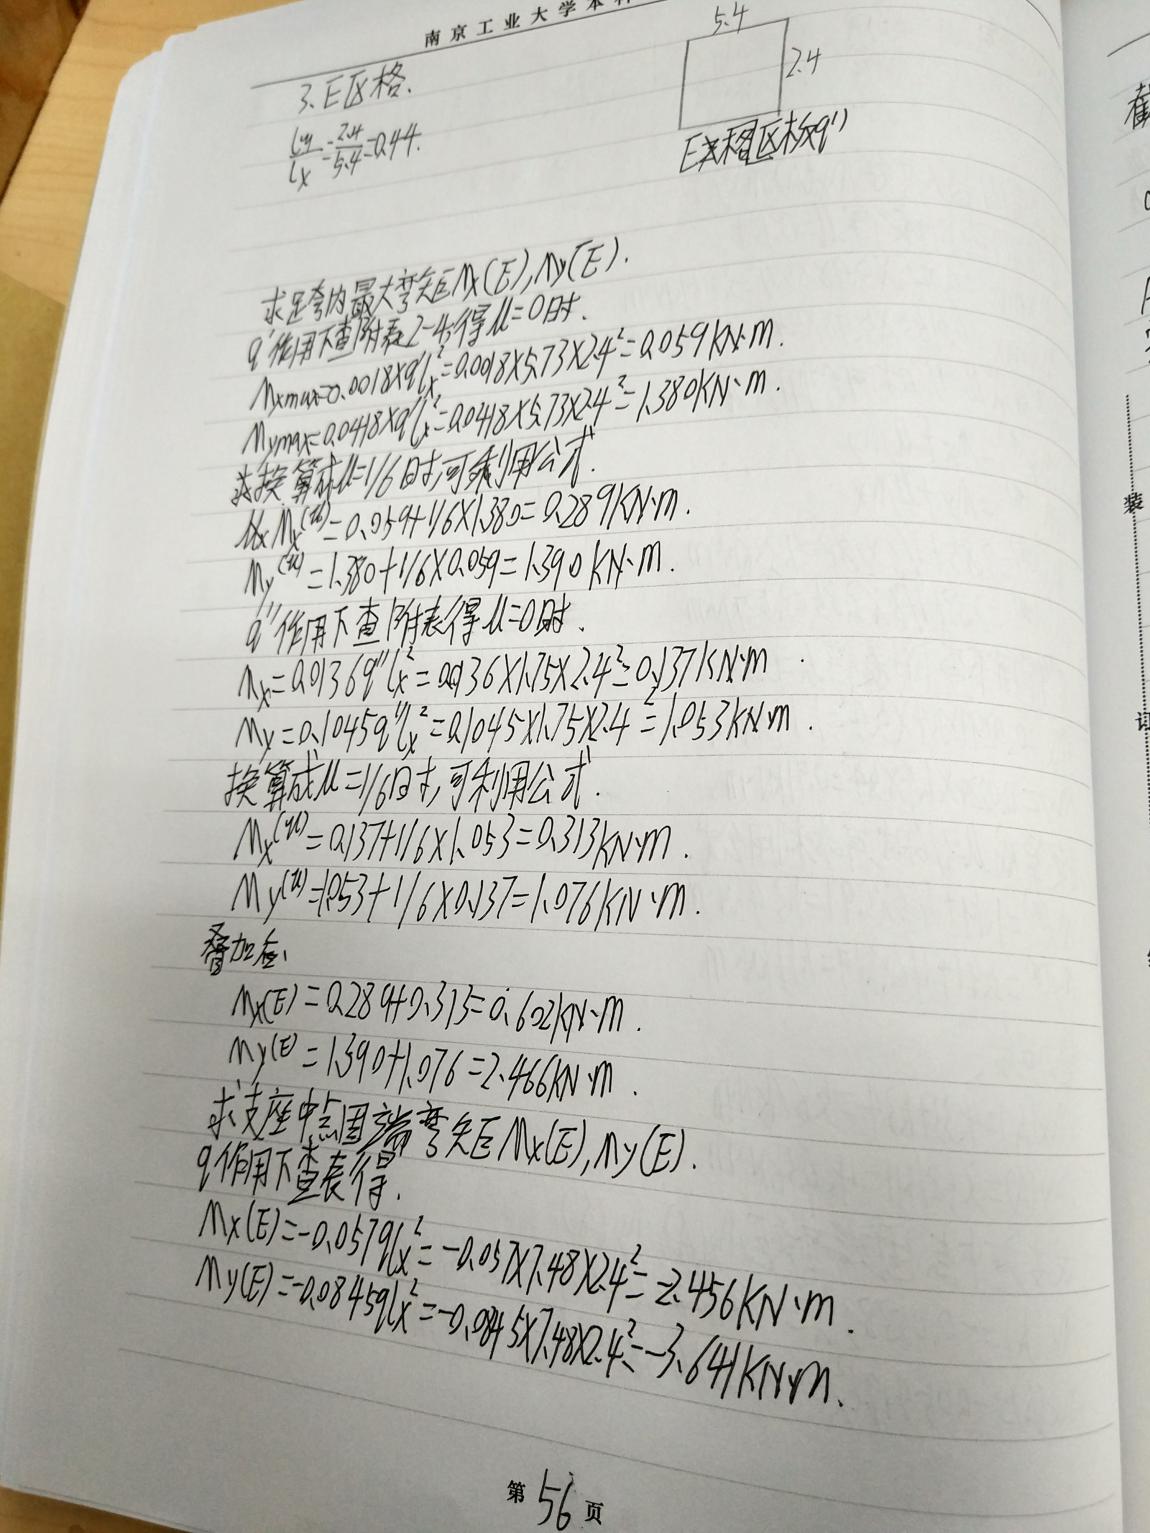 南京工业大学本科
3、E区格.
5.4
2.4
ly/lx=2.4/5.4=0.44.
E区格(q')
求足夸内最大弯矩Mx(E),My(E).
q'作用下查附表2-4,得μ=0时.
Mxmax=0.0018×q'lx²=0.0018×5.73×2.4²=0.059KN·m.
Mymax=0.0418×q'lx²=0.0418×5.73×2.4²=1.380KN·m.
换算成μ=1/6时,可利用公式.
Mx(u)=0.059+1/6×1.380=0.289KN·m.
My(u)=1.380+1/6×0.059=1.390KN·m.
q''作用下查附表得μ=0时.
Mx=0.0136q''lx²=0.0136×1.75×2.4²=0.137KN·m
My=0.1045q''lx²=0.1045×1.75×2.4²=1.053KN·m.
换算成μ=1/6时,可利用公式.
Mx(u)=0.137+1/6×1.053=0.313KN·m.
My(u)=1.053+1/6×0.137=1.076KN·m.
叠加后、
Mx(E)=0.289+0.313=0.602KN·m.
My(E)=1.390+1.076=2.466KN·m.
求支座中点固端弯矩Mx(E),My(E).
q作用下查表得.
Mx(E)=-0.057qlx²=-0.057×7.48×2.4²=-2.456KN·m.
My(E)=-0.0845qlx²=-0.0845×7.48×2.4²=-3.641KN·m.
第56页
截
装
订